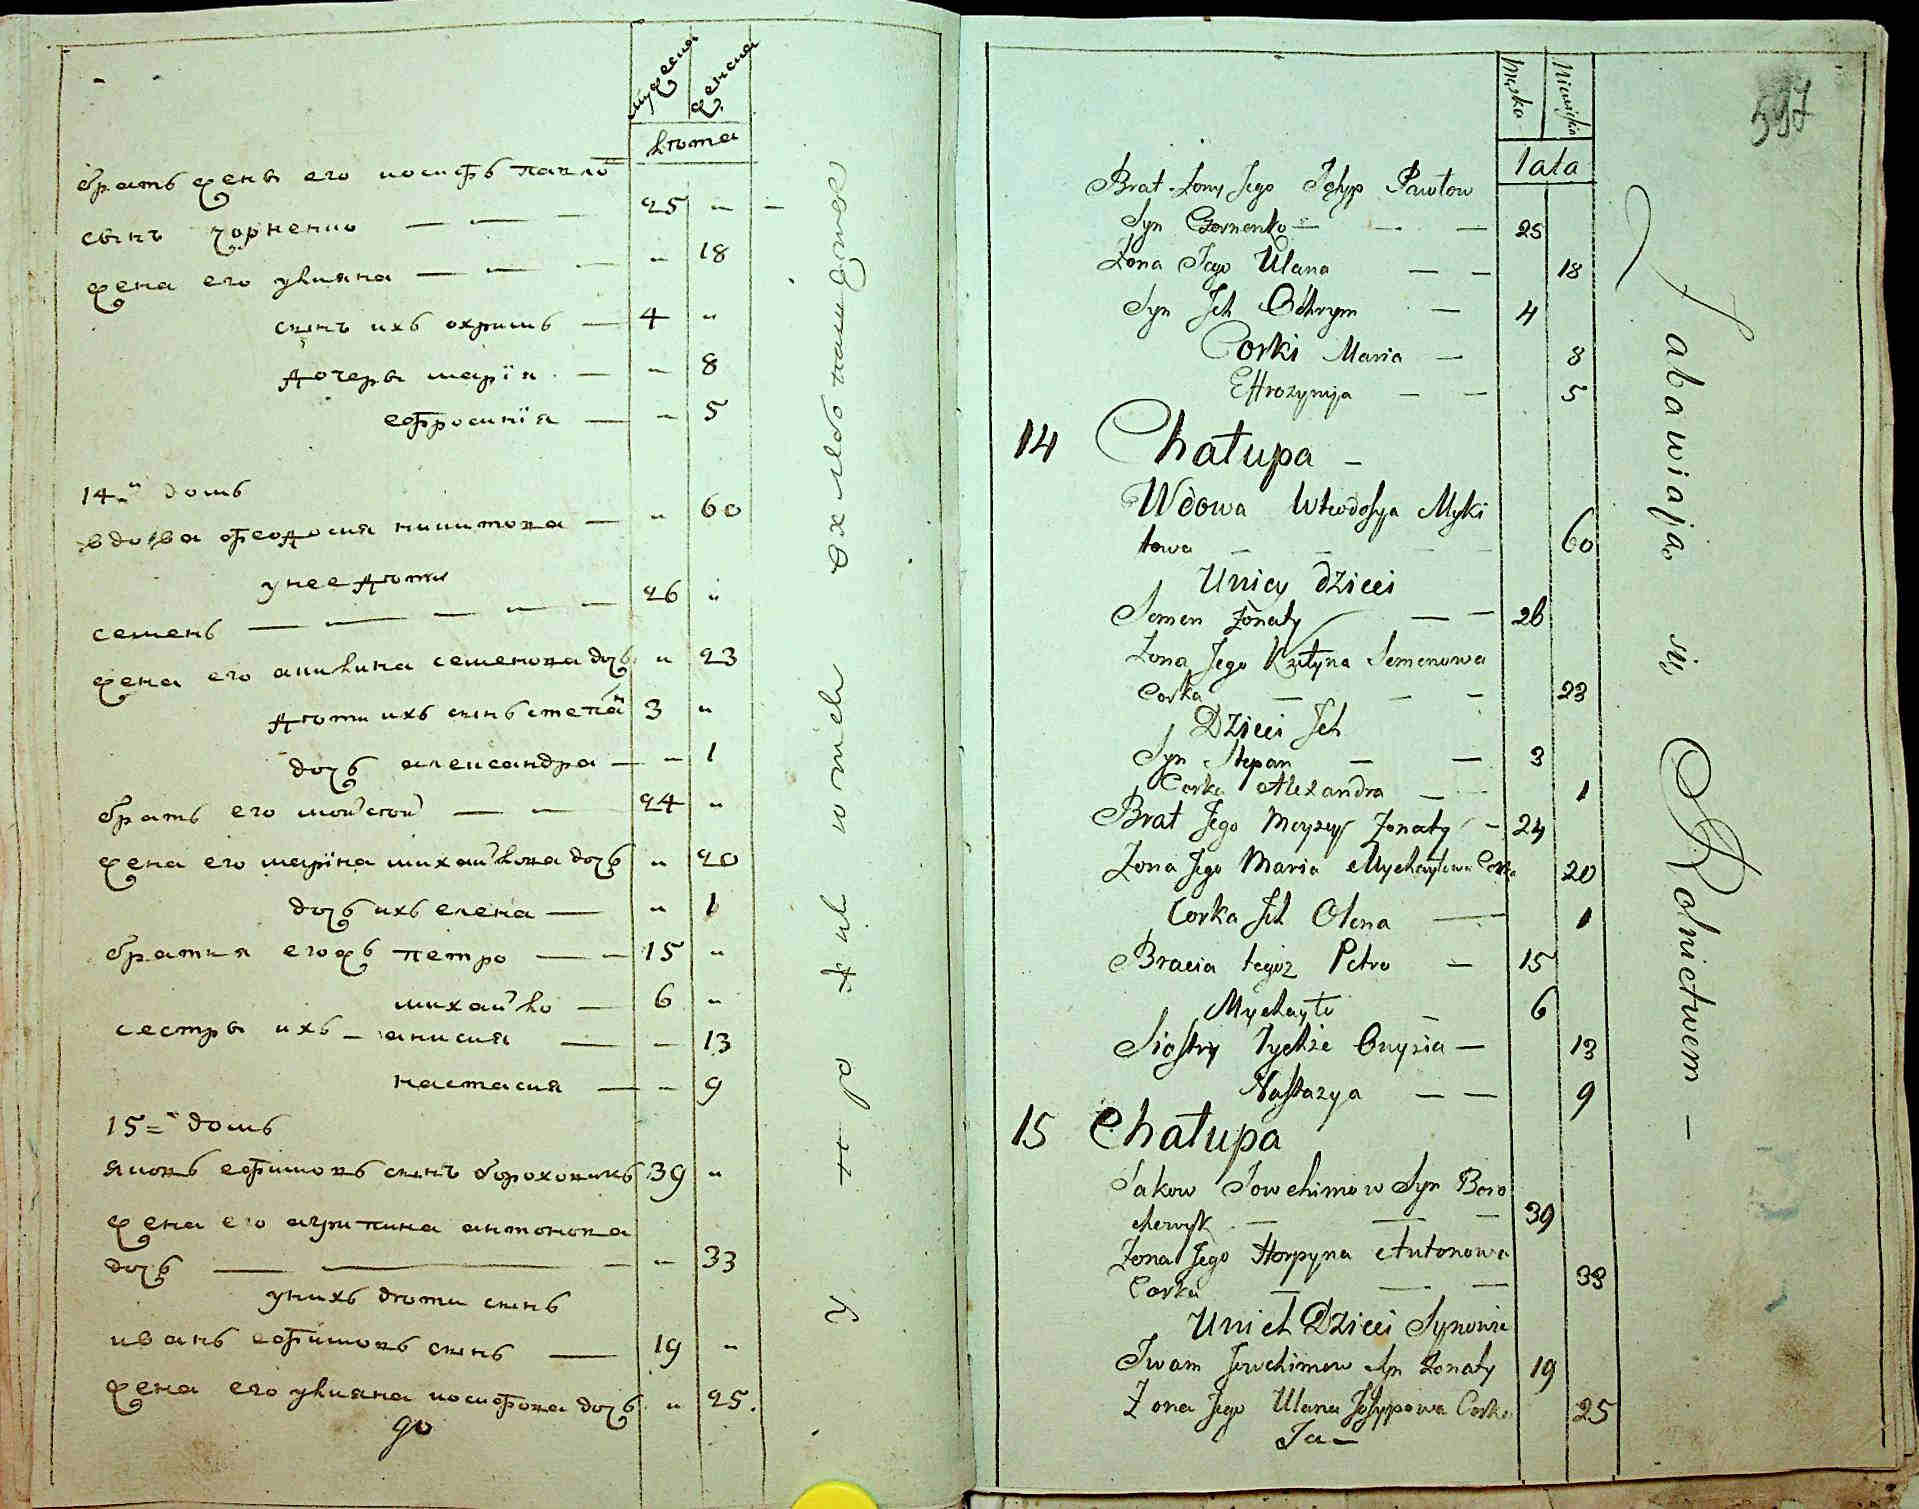 мужеска женска
лѣта
братъ жены его иосифъ павло
сынъ чорненко — — — 25 "
жена его улияна — — — " 18
сынъ ихъ охримъ — 4 "
дочеры марія — " 8
ефросинія — " 5
14-й домъ
вдова феодосия никитова — " 60
у нее дѣти
семенъ — — — — — 26 "
жена его акилина семенова дочь " 23
дѣти ихъ сынъ степан 3 "
дочь александра — " 1
братъ его мойсей — — 24 "
жена его марiна михайлова дочь " 20
дочь ихъ елена — " 1
братия егожъ петро — — 15 "
михайло — 6 "
сестры ихъ — анисия — " 13
настасия — " 9
15-й домъ
яковъ ефимовъ сынъ бороховикъ 39 "
жена его агрипина антонова
дочь — — — " 33
у нихъ дѣти сынъ
иванъ ефимовъ сынъ — 19 "
жена его улияна иосифова дочь " 25.
до
упражняются въ хлебопашествѣ
597
męsko niewiesko
lata
Brat Żony Jego Josyp Pawłow
Syn Czornenko — — 25
Żona Jego Ulana — — 18
Syn Ich Ochrym — 4
Corki Maria — 8
Effrozynija — — 5
14 Chałupa —
Wdowa Ftwdosya Myki
towa — — — — 60
U nicy dzieci
Semen Żonaty — — 26
Żona Jego Kulyna Semenowa
Corka — — — 23
Dzieci Ich
Syn Stepan — — 3
Corka Alexandra — — 1
Brat Jego Moyzey Żonaty — 24
Żona Jego Maria Mychayłowa Corka 20
Corka Ich Olena — 1
Bracia tegoż Petro — 15
Mychayło — 6
Siostry Tychże Onyzia — 13
Nastazya — — 9
15 Chałupa
Jakow Jowchimow Syn Boro
chowyk — — — 39
Żona Jego Horpyna Antonowa
Corka — — — 33
U nich Dzieci Synowie
Iwan Jowchimow Syn Żonaty 19
Żona Jego Ulana Josypowa Corka 25
Ja —
Zabawiają się Rolnictwem —